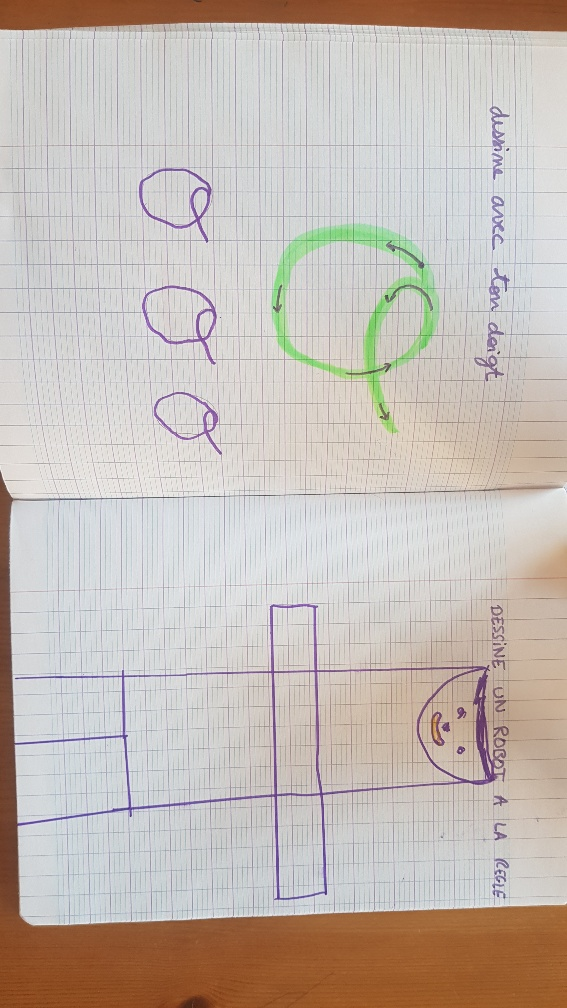 dessine avec ton doigt
DESSINE UN ROBOT A LA REGLE